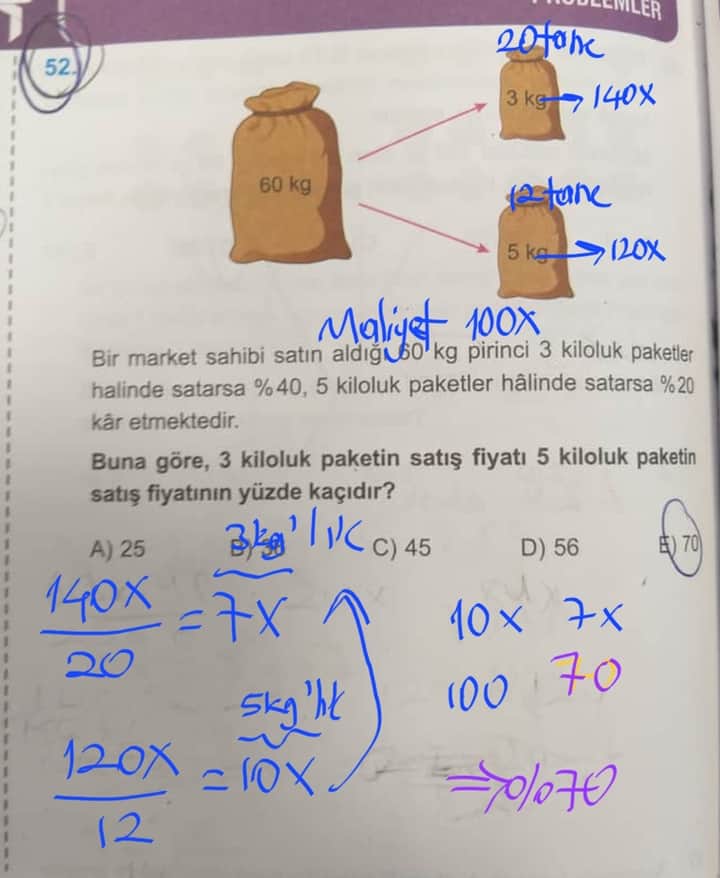 PROBLEMLER
52.
20 tane
3 kg → 140X
60 kg
12 tane
5 kg → 120X
Maliyet 100X
Bir market sahibi satın aldığı 60 kg pirinci 3 kiloluk paketler
halinde satarsa %40, 5 kiloluk paketler hâlinde satarsa %20
kâr etmektedir.
Buna göre, 3 kiloluk paketin satış fiyatı 5 kiloluk paketin
satış fiyatının yüzde kaçıdır?
3kg'lık
A) 25 B) 36 C) 45 D) 56 E) 70
140X / 20 = 7X
10x 7x
100 70
5kg'lık
120X / 12 = 10X
⇒ %70